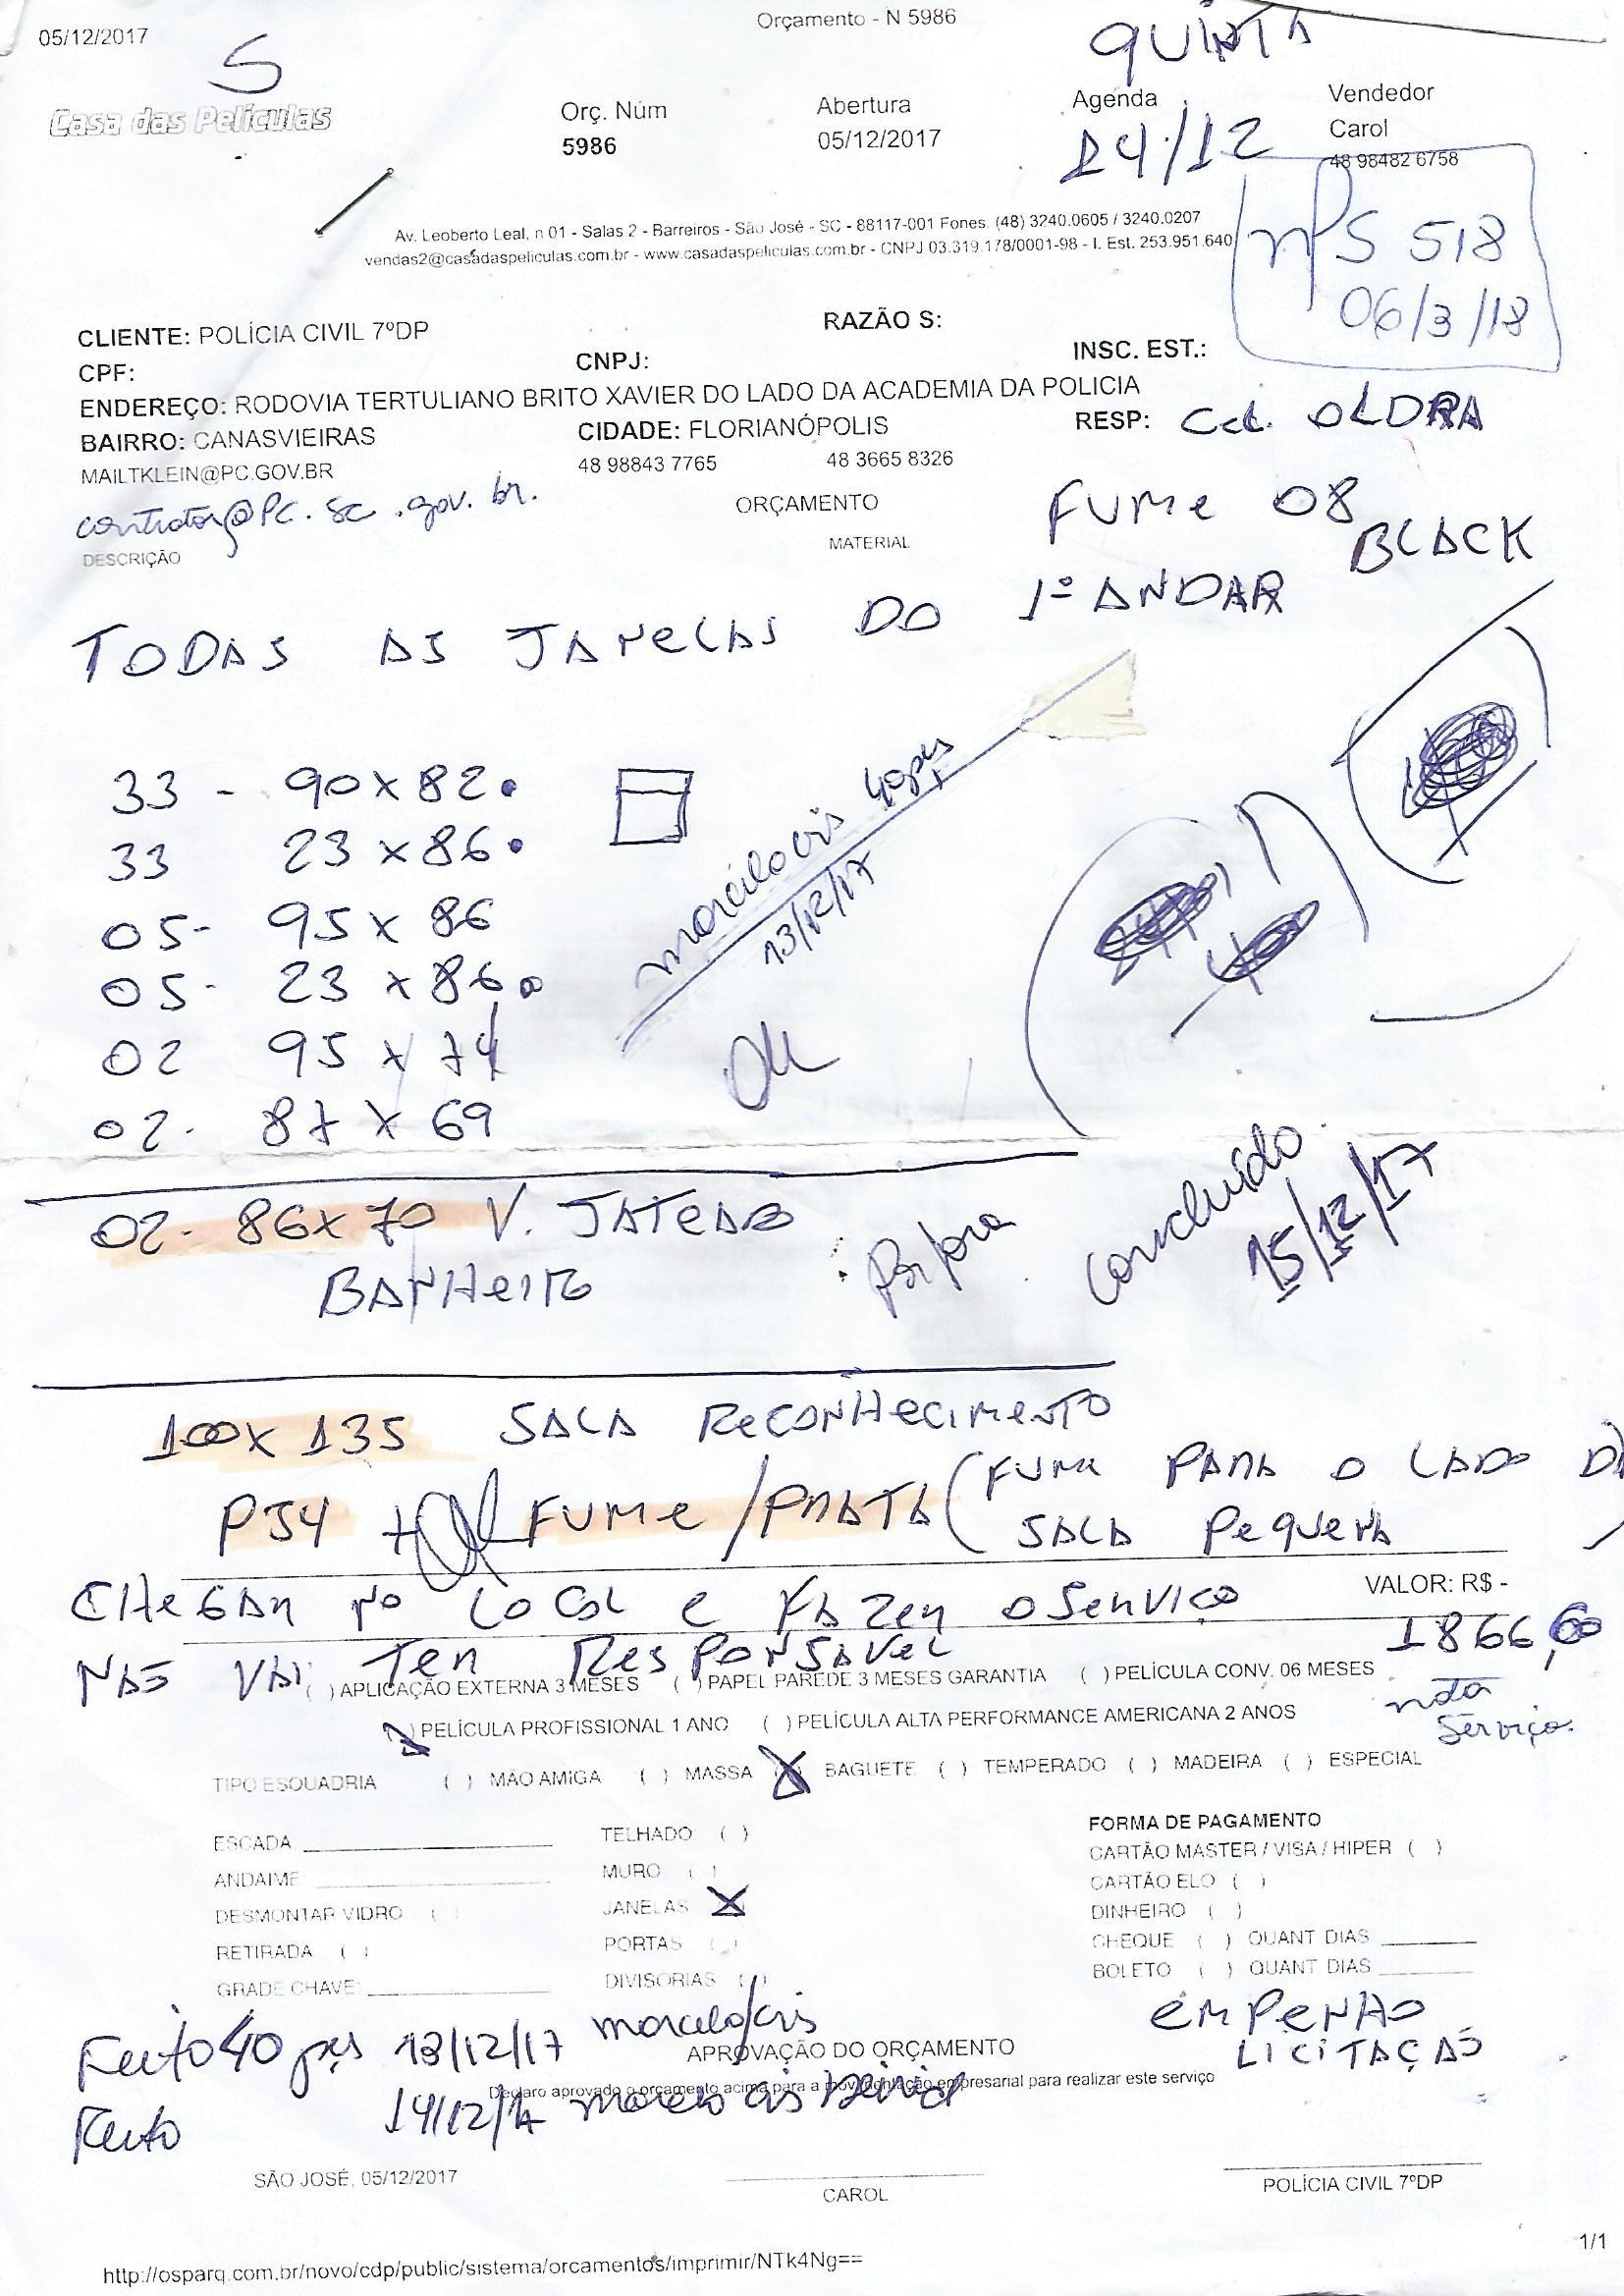 05/12/2017
Orçamento - N 5986
QUINTA
S
Casa das Películas
Orç. Núm
5986
Abertura
05/12/2017
Agenda
14/12
Vendedor
Carol
48 98482 6758
Av. Leoberto Leal, n 01 - Salas 2 - Barreiros - São José - SC - 88117-001 Fones. (48) 3240.0605 / 3240.0207
vendas2@casadaspeliculas.com.br - www.casadaspeliculas.com.br - CNPJ 03.319.178/0001-98 - I. Est. 253.951.640
518
06/3/18
CLIENTE: POLÍCIA CIVIL 7ºDP
RAZÃO S:
CPF:
CNPJ:
INSC. EST.:
ENDEREÇO: RODOVIA TERTULIANO BRITO XAVIER DO LADO DA ACADEMIA DA POLICIA
BAIRRO: CANASVIEIRAS
CIDADE: FLORIANÓPOLIS
RESP:
MAILTKLEIN@PC.GOV.BR
48 98843 7765
48 3665 8326
@PC.sc.gov.br.
ORÇAMENTO
FUMe 08
BLACK
DESCRIÇÃO
MATERIAL
TODAS AS JANELAS DO 1º ANDAR
33 - 90 x 82
33 23 x 86
05- 95 x 86
05- 23 x 86
02 95 x 74
02- 87 x 69
13/12/17
Ok
02- 86x70 V. JATEADO
BANHEIRO
P/fora
concluído
15/12/17
100x 135 SALA ReCONHeCIMeNTO
PS4 FUMe / PRATA (FUMe PARA O LADO DA
SALA PeQUeNA)
CHeGAR NO LOCAL e FAZeR O SeRVIÇO
VALOR: R$ -
1866,60
NÃO VAI TeR ReSPONSÁVeL
( ) APLICAÇÃO EXTERNA 3 MESES ( ) PAPEL PAREDE 3 MESES GARANTIA ( ) PELÍCULA CONV. 06 MESES
nota
serviço.
(X) PELÍCULA PROFISSIONAL 1 ANO ( ) PELÍCULA ALTA PERFORMANCE AMERICANA 2 ANOS
TIPO ESQUADRIA ( ) MÃO AMIGA ( ) MASSA (X) BAGUETE ( ) TEMPERADO ( ) MADEIRA ( ) ESPECIAL
ESCADA
ANDAIME
DESMONTAR VIDRO ( )
RETIRADA ( )
GRADE CHAVE
TELHADO ( )
MURO ( )
JANELAS (X)
PORTAS ( )
DIVISORIAS ( )
FORMA DE PAGAMENTO
CARTÃO MASTER / VISA / HIPER ( )
CARTÃO ELO ( )
DINHEIRO ( )
CHEQUE ( ) QUANT DIAS
BOLETO ( ) QUANT DIAS
eMPeNHO
LICITAÇÃO
Feito 40 pçs 13/12/17
APROVAÇÃO DO ORÇAMENTO
Declaro aprovado o orçamento acima para a movimentação empresarial para realizar este serviço
Feito 14/12/17
SÃO JOSÉ, 05/12/2017
CAROL
POLÍCIA CIVIL 7ºDP
1/1
http://osparq.com.br/novo/cdp/public/sistema/orcamentos/imprimir/NTk4Ng==